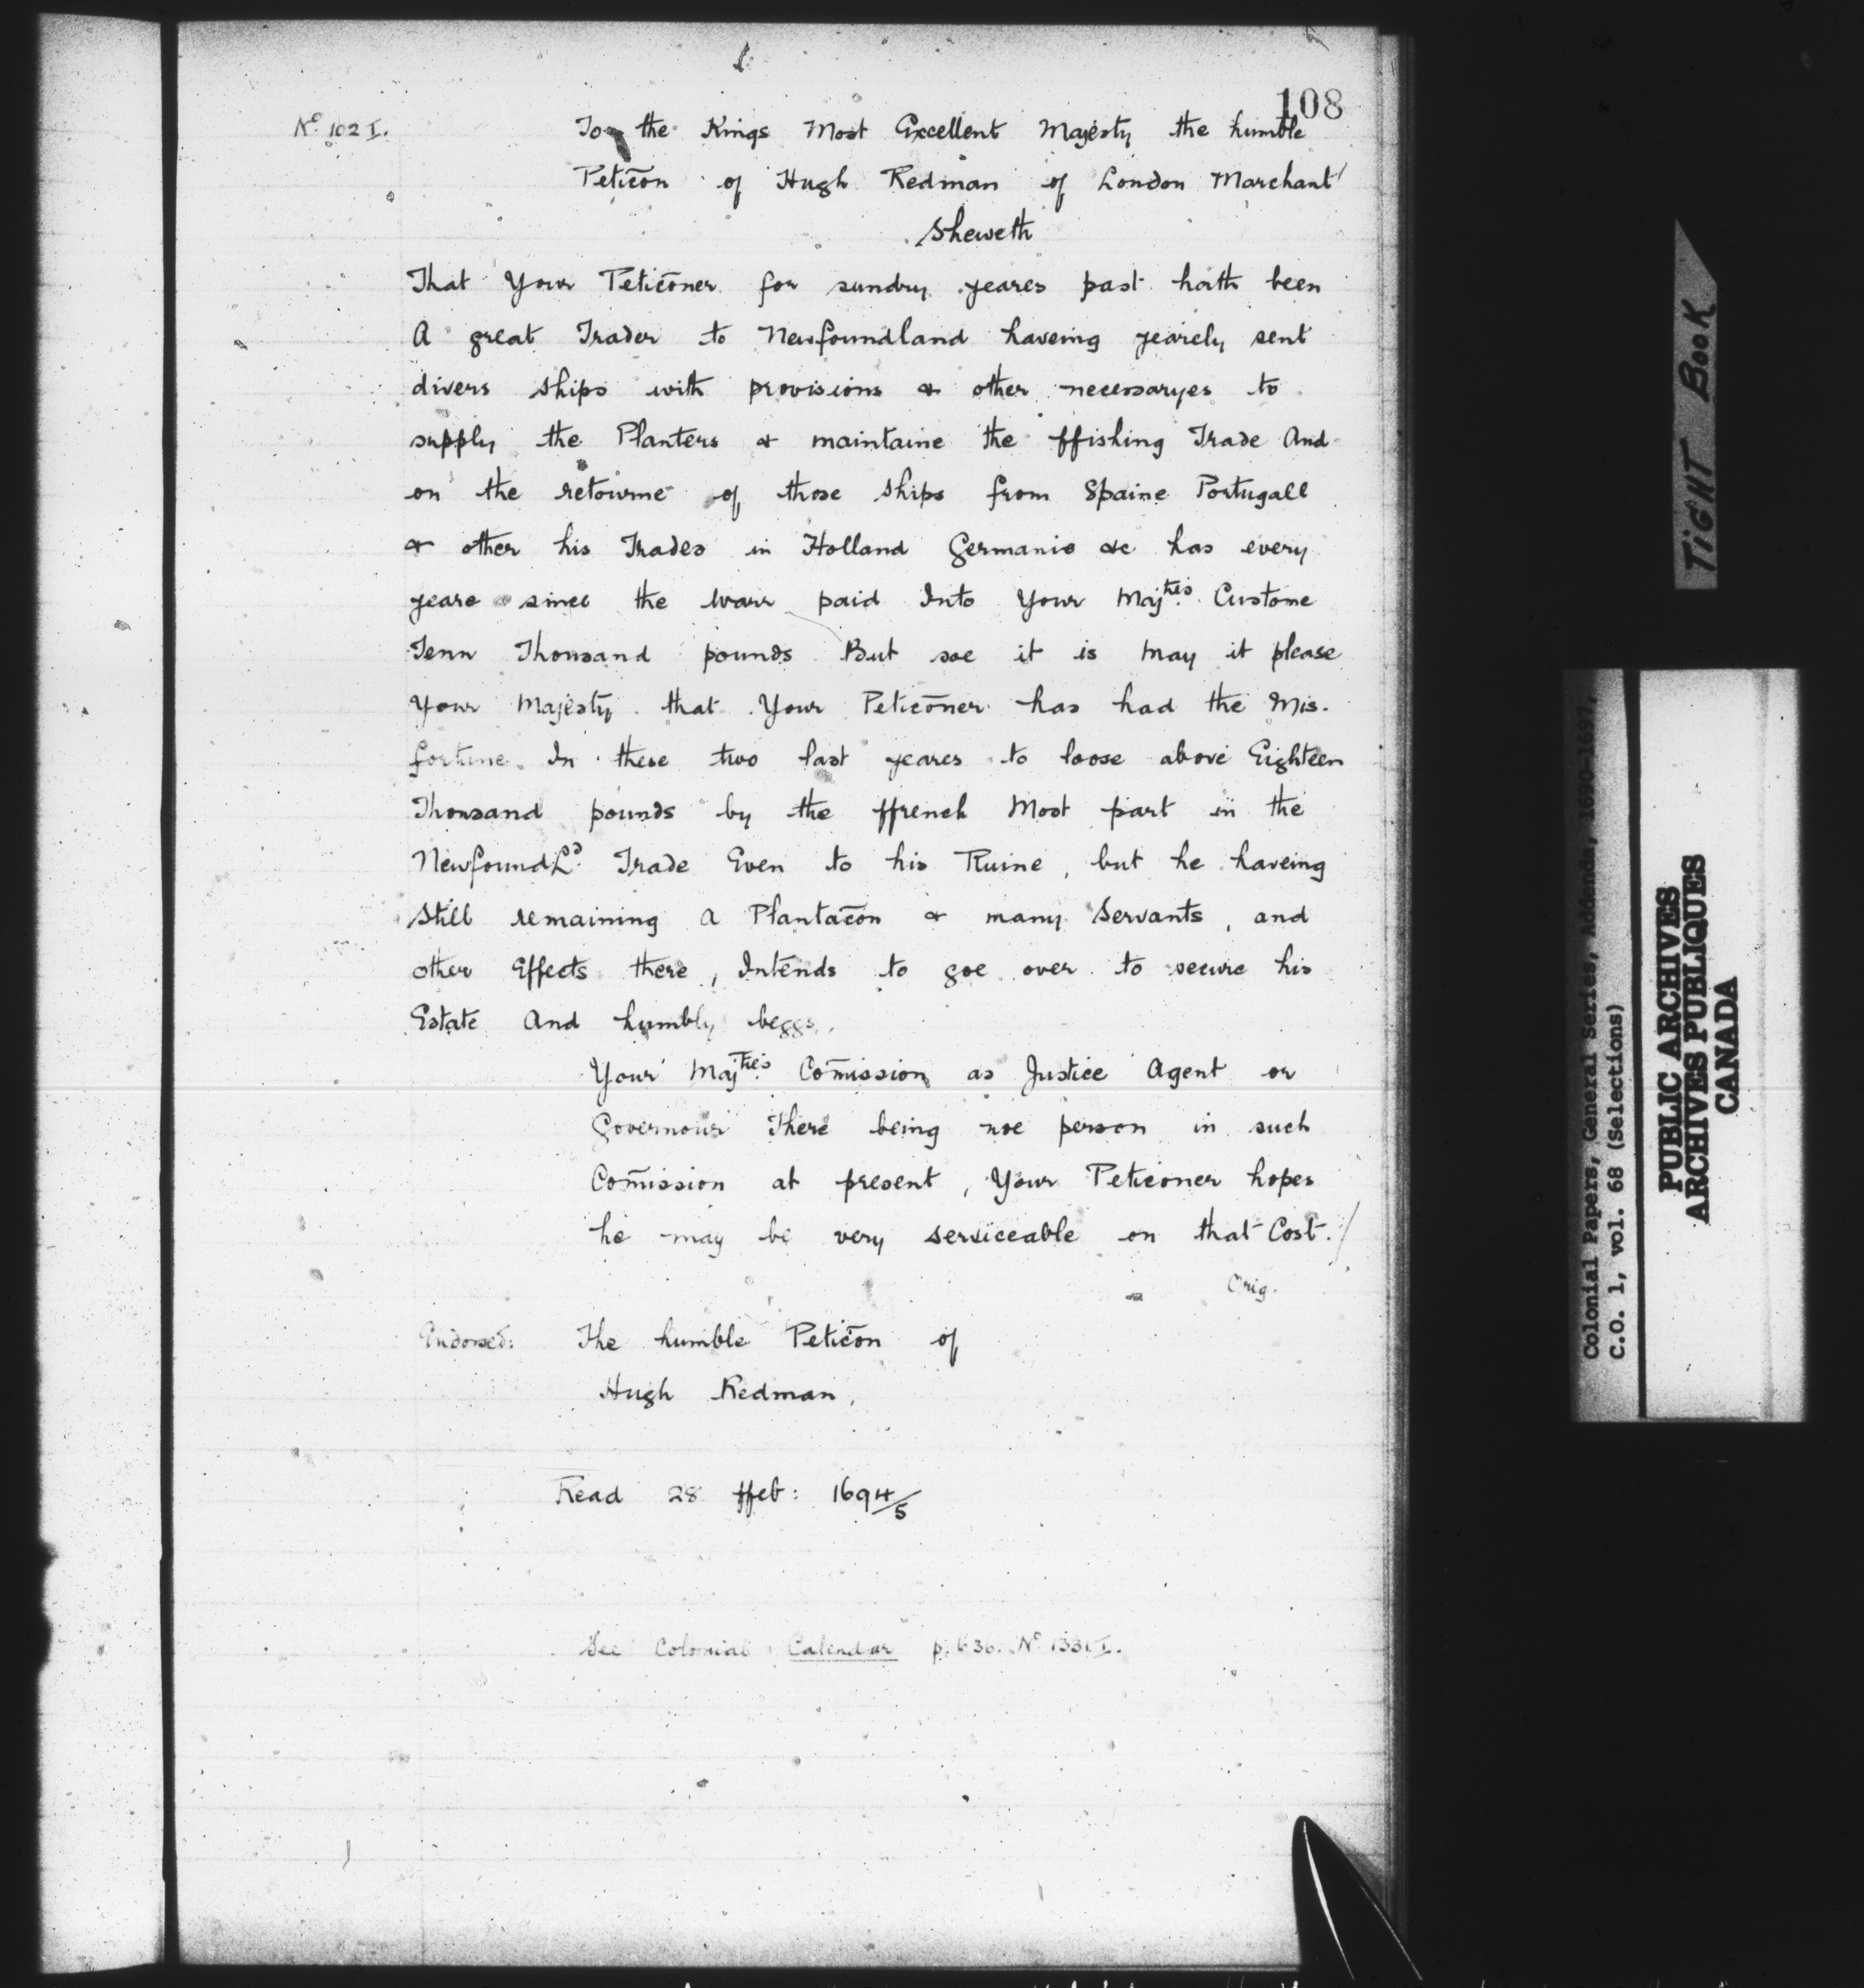 108
No. 102 I.
To the Kings Most Excellent Majesty the humble
Peticōn of Hugh Redman of London Marchant/
Sheweth
That Your Peticōner for sundry yeares past hath been
A great Trader to Newfoundland haveing yearely sent
divers Ships with provisions & other necessaryes to
supply the Planters & maintaine the ffishing Trade And
on the retourne of those Ships from Spaine Portugall
& other his Trades in Holland Germanie &c has every
yeare since the Warr paid Into Your Maj.ties Custome
Tenn Thousand pounds But soe it is May it please
Your Majesty that Your Peticōner has had the Mis-
fortune In these two last yeares to loose above Eighteen
Thousand pounds by the ffrench Most part in the
NewfoundLd. Trade Even to his Ruine, but he haveing
Still remaining a Plantacōn & many Servants, and
other Effects there, Intends to goe over to secure his
Estate And humbly beggs,
Your Maj.ties Com̄ission as Justice Agent or
Governour There being noe person in such
Com̄ission at present, Your Peticioner hopes
he may be very serviceable on that Cost./
Orig.
Endorsed: The humble Peticōn of
Hugh Redman,
Read 28 ffeb: 1694/5
See Colonial Calendar p. 636. No. 1331 I.
TIGHT BOOK
Colonial Papers, General Series, Addenda, 1690-1697,
C.O. 1, vol. 68 (Selections)
PUBLIC ARCHIVES
ARCHIVES PUBLIQUES
CANADA